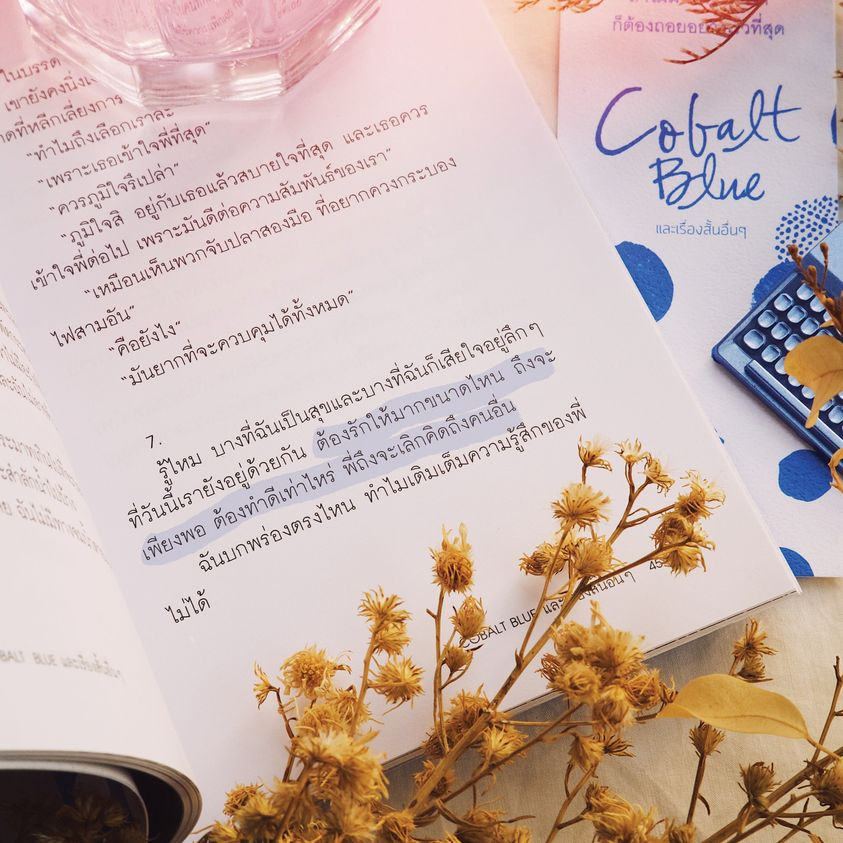 ในบรรด
เขายังคงนิ่งเ
าดที่หลีกเลี่ยงการ
“ทำไมถึงเลือกเราล่ะ
“เพราะเธอเข้าใจพี่ที่สุด”
“ควรภูมิใจรึเปล่า”
“ภูมิใจสิ อยู่กับเธอแล้วสบายใจที่สุด และเธอควร
เข้าใจพี่ต่อไป เพราะมันดีต่อความสัมพันธ์ของเรา”
“เหมือนเห็นพวกจับปลาสองมือ ที่อยากควงกระบอง
ไฟสามอัน”
“คือยังไง”
“มันยากที่จะควบคุมได้ทั้งหมด”
7.
รู้ไหม บางทีฉันเป็นสุขและบางทีฉันก็เสียใจอยู่ลึกๆ
ที่วันนี้เรายังอยู่ด้วยกัน ต้องรักให้มากขนาดไหน ถึงจะ
เพียงพอ ต้องทำดีเท่าไหร่ พี่ถึงจะเลิกคิดถึงคนอื่น
ฉันบกพร่องตรงไหน ทำไมเติมเต็มความรู้สึกของพี่
ไม่ได้
COBALT BLUE และเรื่องสั้นอื่นๆ 45
BALT BLUE และเรื่องสั้นอื่นๆ
ก็ต้องถอยอย ที่สุด
Cobalt
Blue
และเรื่องสั้นอื่นๆ